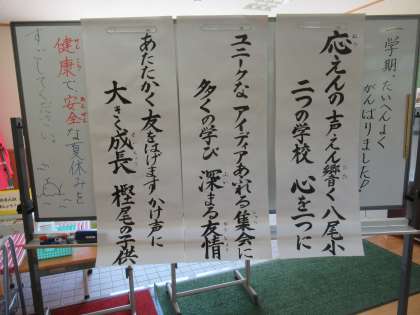 一学期、たいへんよく
がんばりました!
応えんの声さえん響く八尾小
二つの学校 心を一つに
ユニークな アイディアあふれる集会に
多くの学び 深まる友情
あたたかく 友をはげます かけ声に
大きく成長 樫尾の子供
健康で安全な夏休みを
すごしてください。